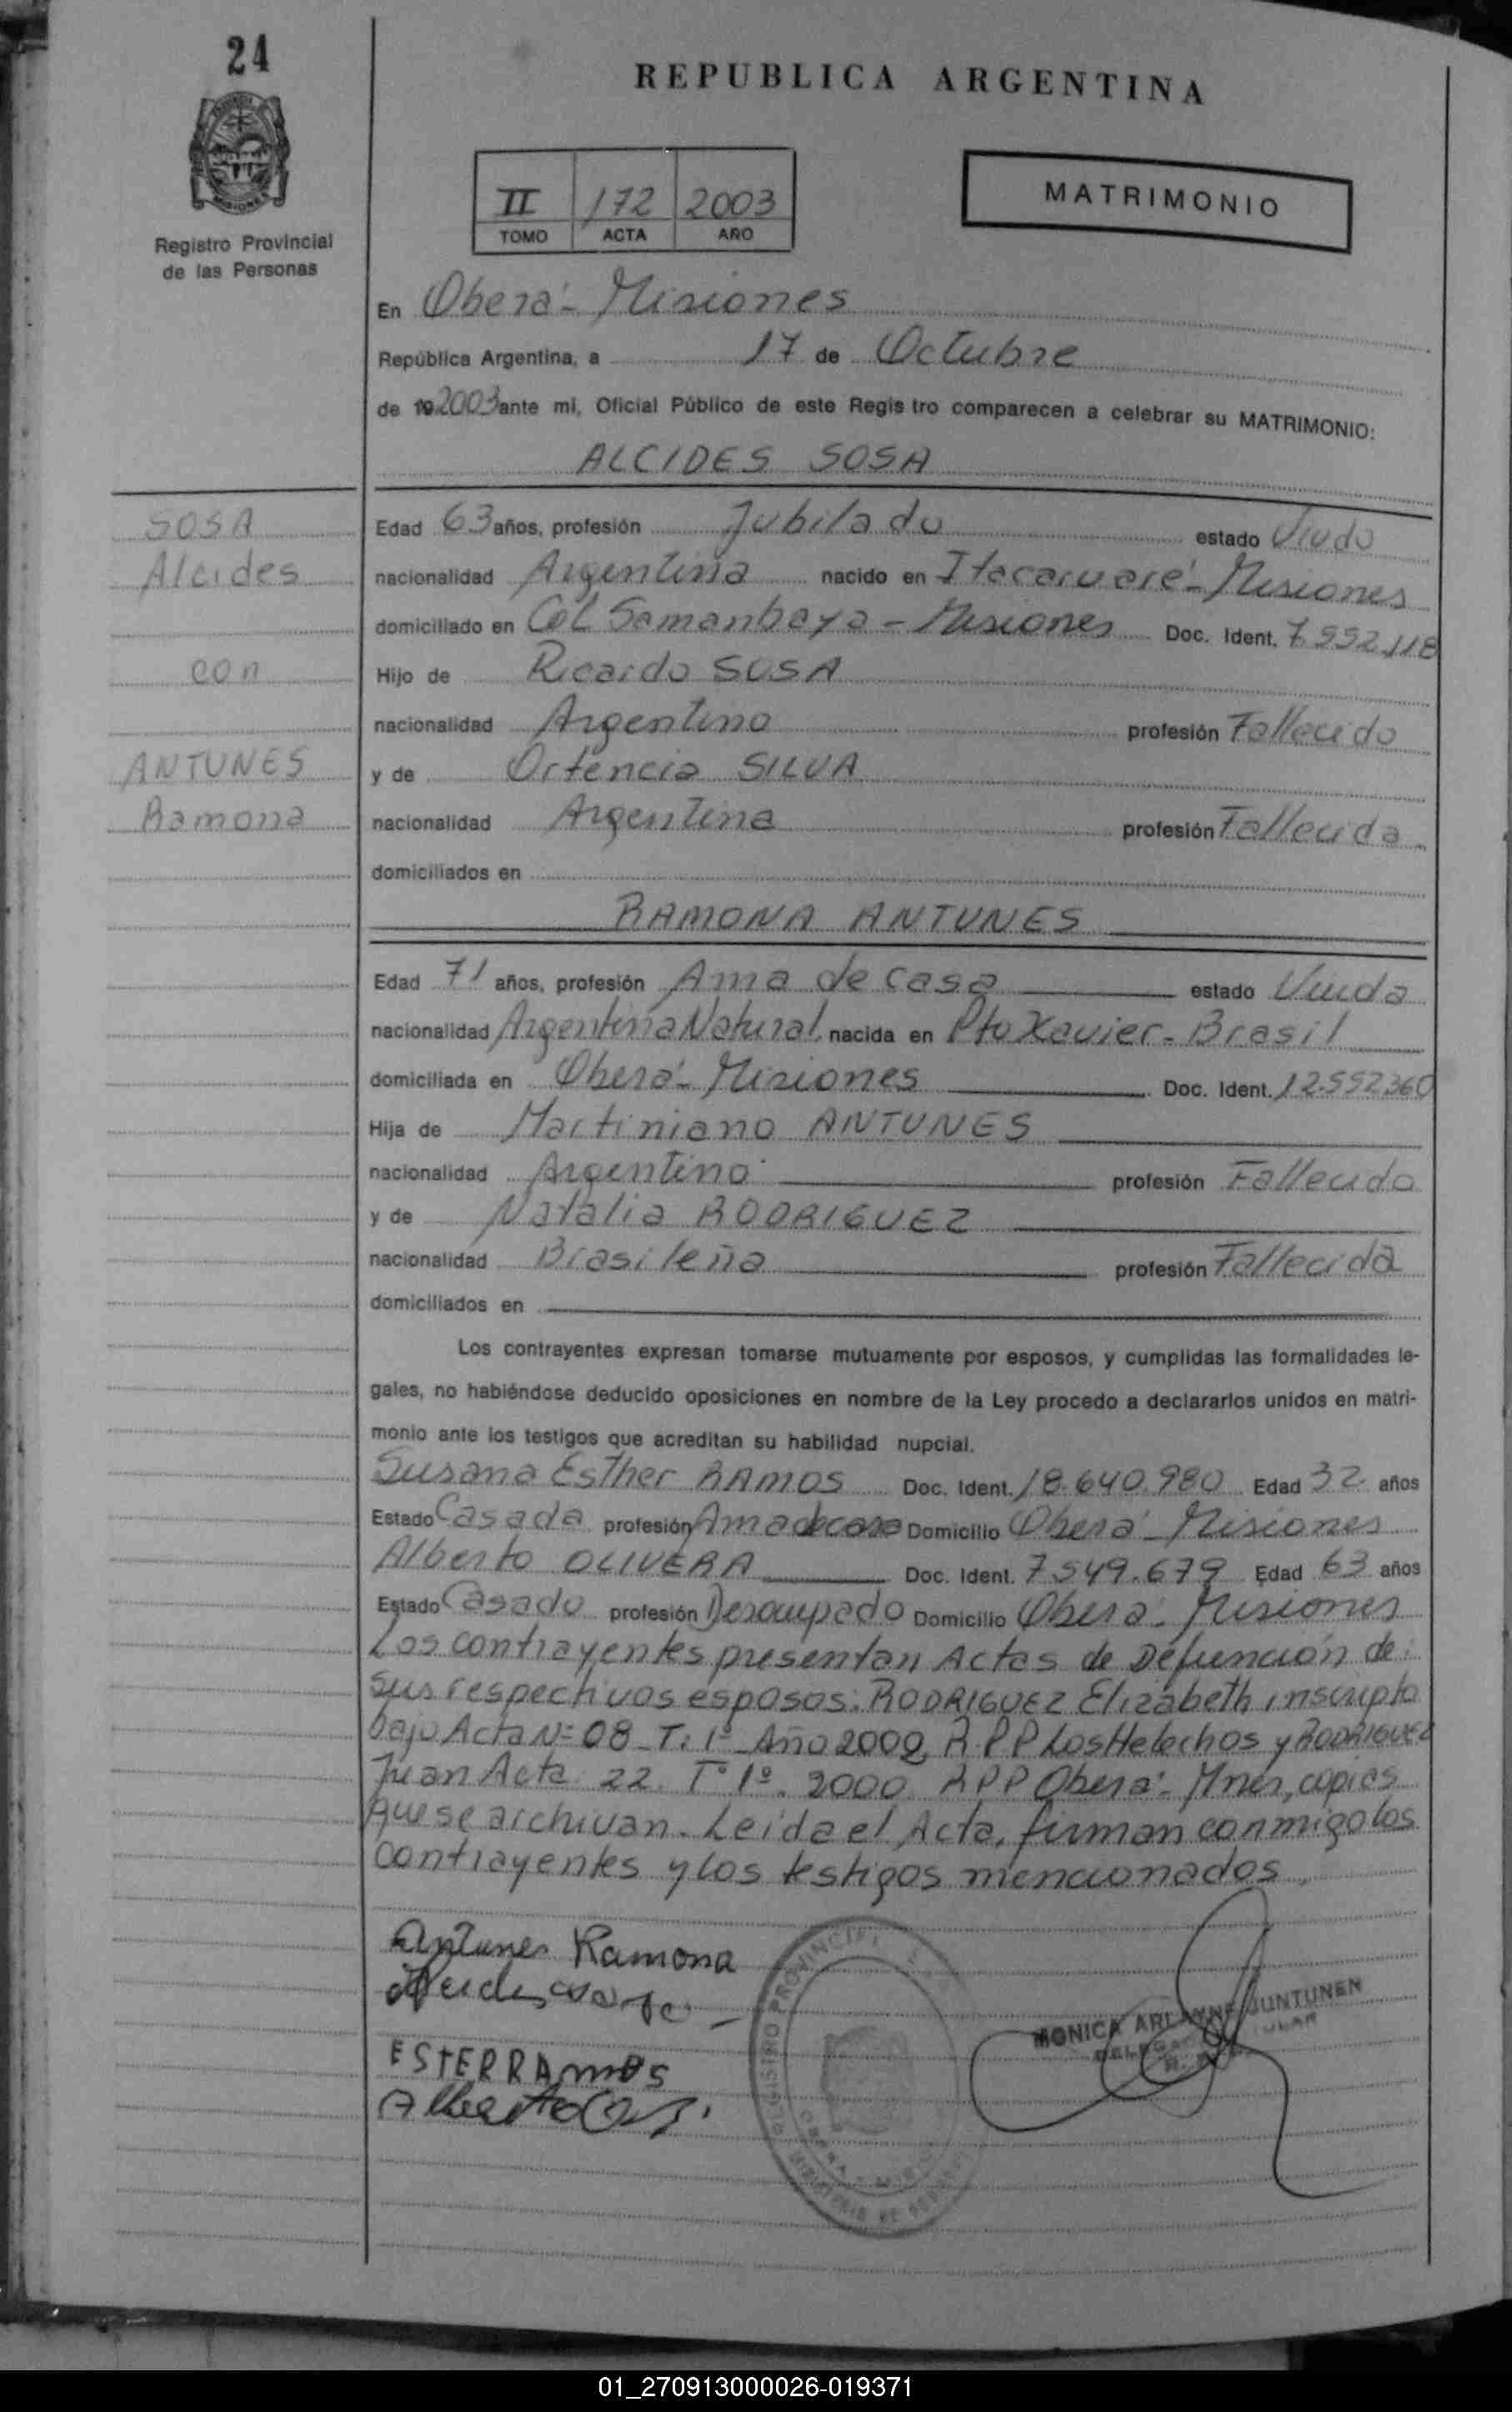 24
REPUBLICA ARGENTINA
II 172 2003
TOMO ACTA AÑO
MATRIMONIO
Registro Provincial
de las Personas
En Oberá - Misiones
República Argentina, a 17 de Octubre
de 19 2003 ante mi, Oficial Público de este Regis tro comparecen a celebrar su MATRIMONIO:
ALCIDES SOSA
SOSA
Alcides
con
ANTUNES
Ramona
Edad 63 años, profesión Jubilado estado Viudo
nacionalidad Argentina nacido en Itacaruaré - Misiones
domiciliado en Col. Samanbaya - Misiones Doc. Ident. 7.552.118
Hijo de Ricardo SOSA
nacionalidad Argentino profesión Fallecido
y de Ortencia SILVA
nacionalidad Argentina profesión Fallecida
domiciliados en
RAMONA ANTUNES
Edad 71 años, profesión Ama de casa estado Viuda
nacionalidad Argentina Natural. nacida en Pto Xavier - Brasil
domiciliada en Oberá - Misiones Doc. Ident. 12.552360
Hija de Martiniano ANTUNES
nacionalidad Argentino profesión Fallecido
y de Natalia RODRIGUEZ
nacionalidad Brasileña profesión Fallecida
domiciliados en
Los contrayentes expresan tomarse mutuamente por esposos, y cumplidas las formalidades le-
gales, no habiéndose deducido oposiciones en nombre de la Ley procedo a declararlos unidos en matri-
monio ante los testigos que acreditan su habilidad nupcial.
Susana Esther RAMOS Doc. Ident. 18.640.980 Edad 32 años
Estado Casada profesión Ama de casa Domicilio Oberá - Misiones
Alberto OLIVERA Doc. Ident. 7.549.679 Edad 63 años
Estado Casado profesión Desocupado Domicilio Oberá - Misiones
Los contrayentes presentan Actas de Defunción de
sus respectivos esposos: RODRIGUEZ Elizabeth inscripta
bajo Acta Nº 08 - T: 1º - Año 2002 R.P.P Los Helechos y RODRIGUEZ
Juan Acta 22. Tº 1º. 2000 RPP Oberá - Mnes, copias
que se archivan. Leida el Acta, firman conmigo los
contrayentes y los testigos mencionados.
Antunes Ramona
ESTERRAMOS
Alberto
REGISTRO PROVINCIAL
MONICA ARIANNE JUNTUNEN
01_270913000026-019371